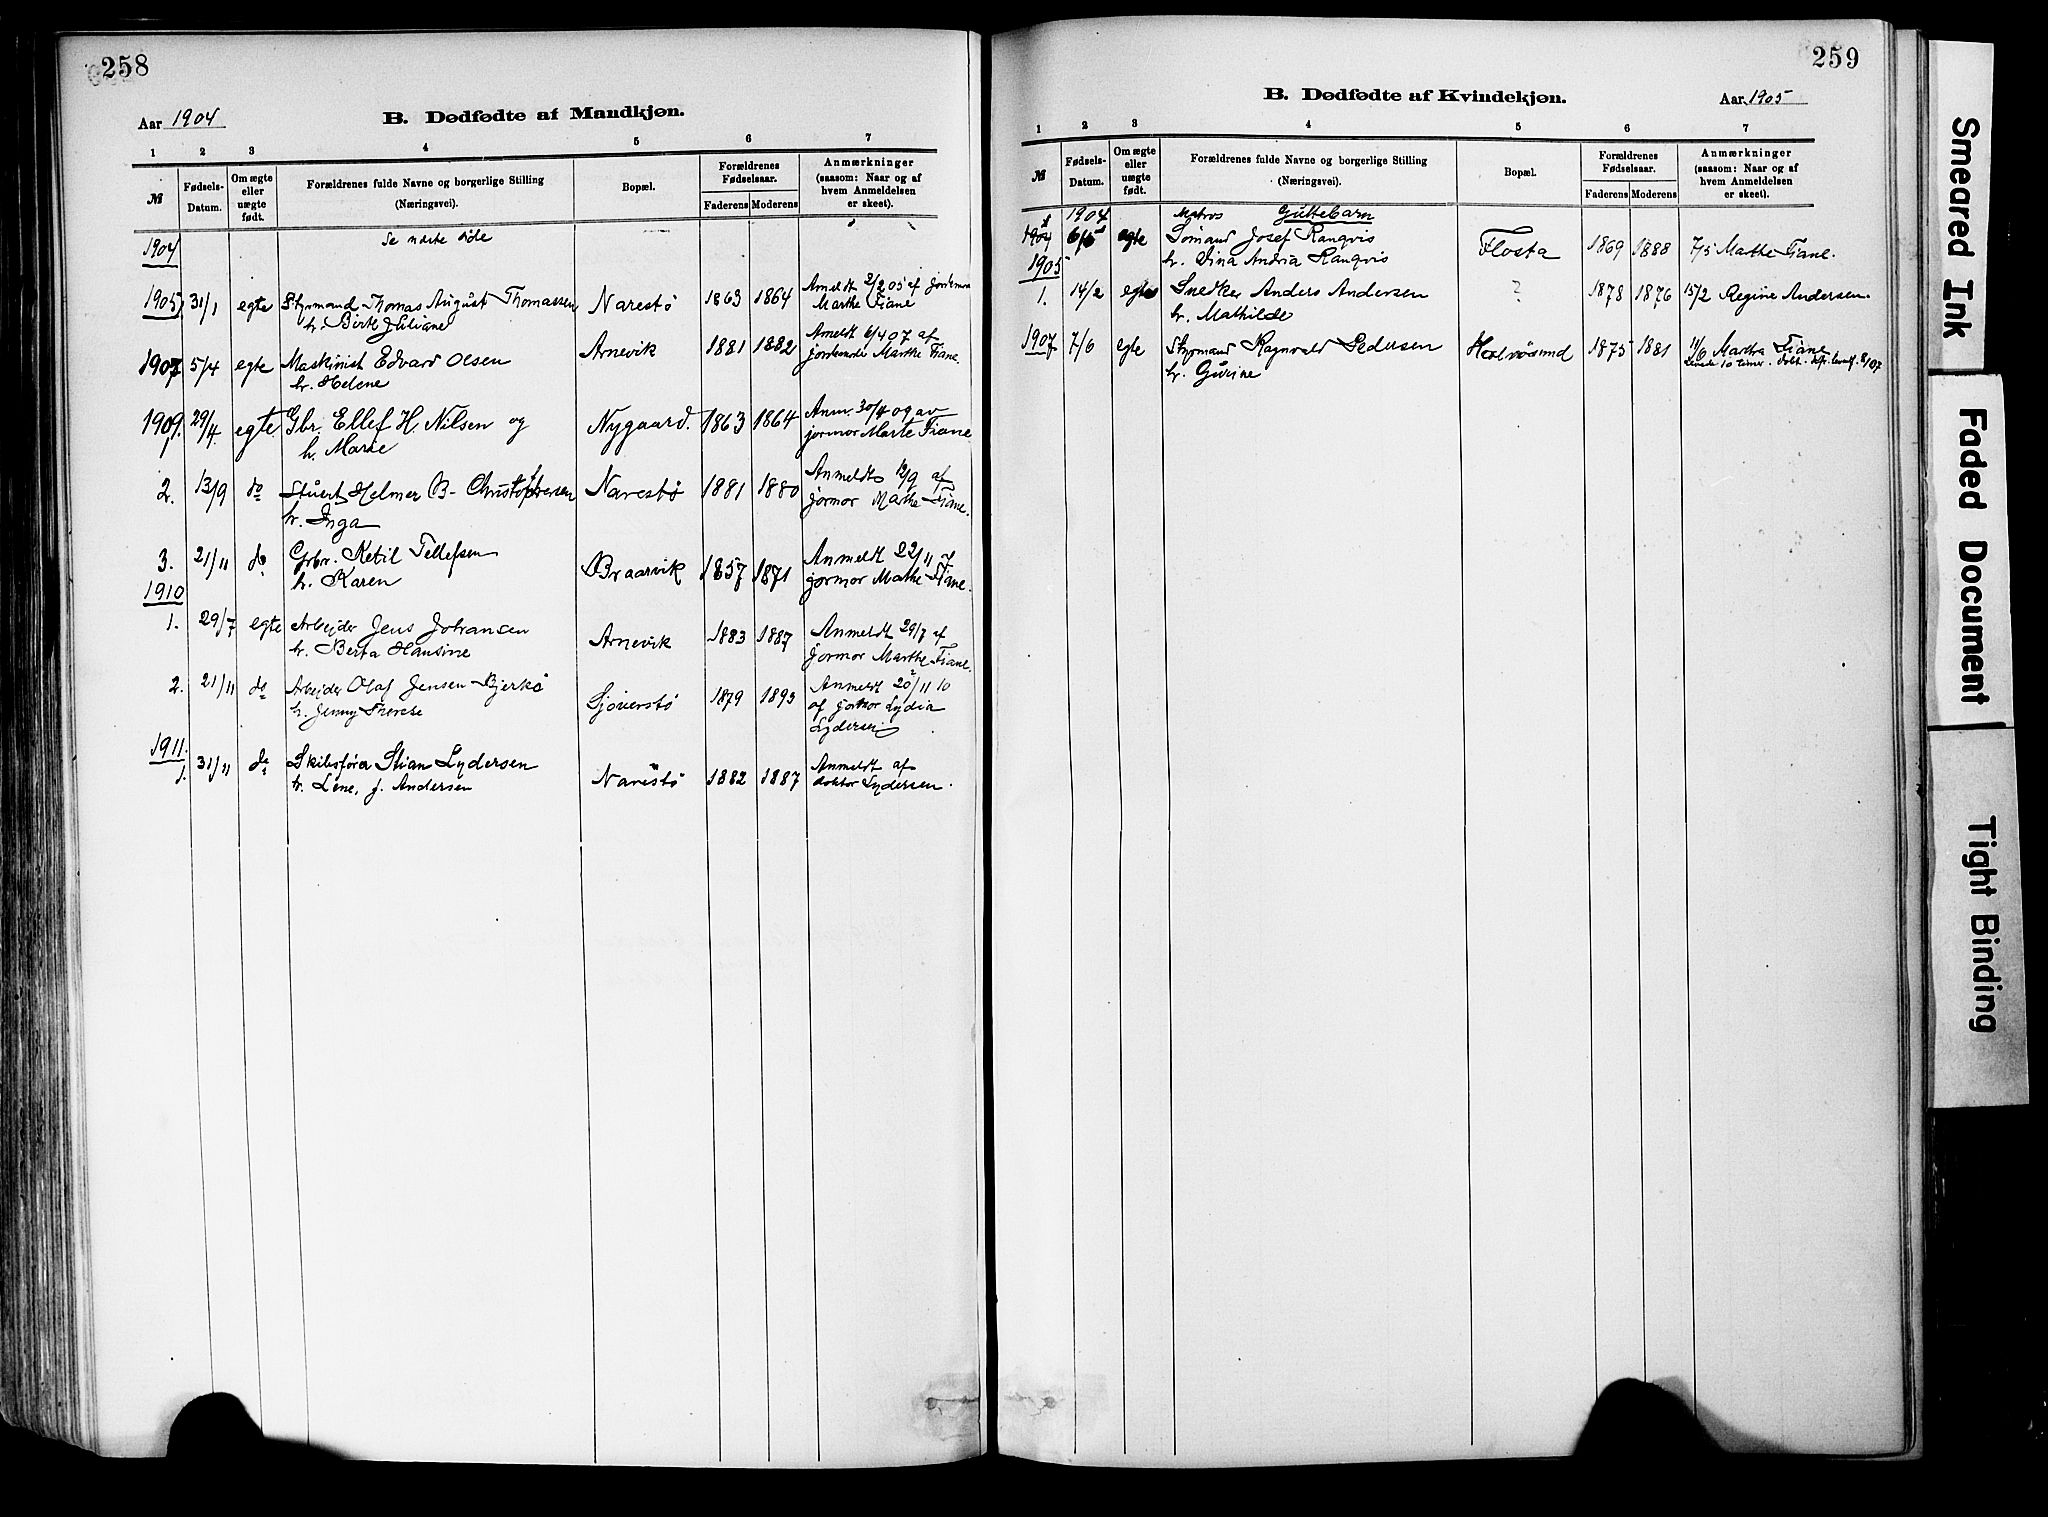 258
Aar 1904
B. Dødfødte af Mandkjøn.
1 2 3 4 5 6 7
№ Fødsels-Datum. Om ægte eller uægte født. Forældrenes fulde Navne og borgerlige Stilling (Næringsvei). Bopæl. Forældrenes Fødselsaar. Faderens Moderens Anmærkninger (saasom: Naar og af hvem Anmeldelsen er skeet).
1904 Se næste side
1905 31/1 egte Styrmand Thomas August Thomassen Narestø 1863 1864 Anmeldt 2/2 05 af Jordemor
h. Birthe Juliane Marthe Fiane
1907 5/4 egte Maskinist Edvard Olsen Arnevik 1881 1882 Anmeldt 6/4 07 af
h. Helene jordemoder Marthe Fiane.
1909. 29/4. egte Gbr. Ellef H. Nilsen og Nygaard. 1863 1864 Anm. 30/4 09 av
h. Marie jormor Marte Fiane
2. 13/9 do Stuert Helmer B. Christophersen Narestø 1881 1880 Anmeldt 12/9 af
h. Inga jormor Marthe Fiane.
3. 21/11 do Grbr. Ketil Tellefsen Braarvik 1857 1871 Anmeldt 22/11 af
h. Karen jormor Mathe Fiane.
1910
1. 29/7 egte Arbejder Jens Johansen Arnevik 1883 1887 Anmeldt 29/7 af
h. Berta Hansine Jormor Marthe Fiane.
2. 21/11 do Arbejder Olaf Jensen Bjerkø Sjøverstø 1879 1893 Anmeldt 20/11 10
h. Jenny Therese af jormor Lydia
Lydersen
1911.
1. 31/11 do Skibsfører Stian Lydersen Narestø 1882 1887 Anmeldt af
h. Lene, f. Andersen doktor Lydersen.
259
B. Dødfødte af Kvindekjøn.
Aar 1905
1 2 3 4 5 6 7
№ Fødsels-Datum. Om ægte eller uægte født. Forældrenes fulde Navne og borgerlige Stilling (Næringsvei). Bopæl. Forældrenes Fødselsaar. Faderens Moderens Anmærkninger (saasom: Naar og af hvem Anmeldelsen er skeet).
1904 Matros Guttebarn
1904 6/5 egte Sømand Josef Ranqvis Flosta 1869 1888 7/5 Marthe Fiane.
h. Dina Andria Ranqvis
1905
1. 14/2 egte Snedker Anders Andersen ? 1878 1876 15/2 Regine Andersen.
h. Mathilde
1907 7/6 egte Styrmand Ragnvald Pedersen Halvøsund 1875 1881 11/6 Martha Fiane
h. Gurine Levede 10 timer.
Smeared Ink
Faded Document
Tight Binding